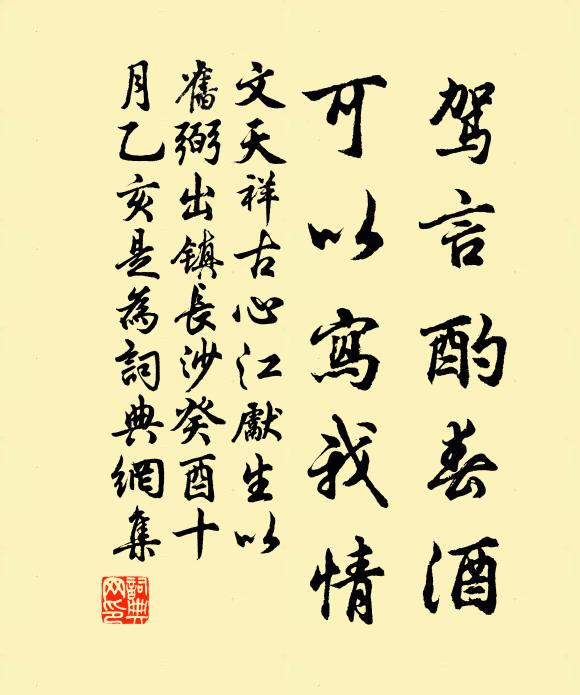 駕言酌春酒
可以寫我情
文天祥古心江獻生以
舊弼出鎮長沙癸酉十
月乙亥是為詞典網集
詞典
网印